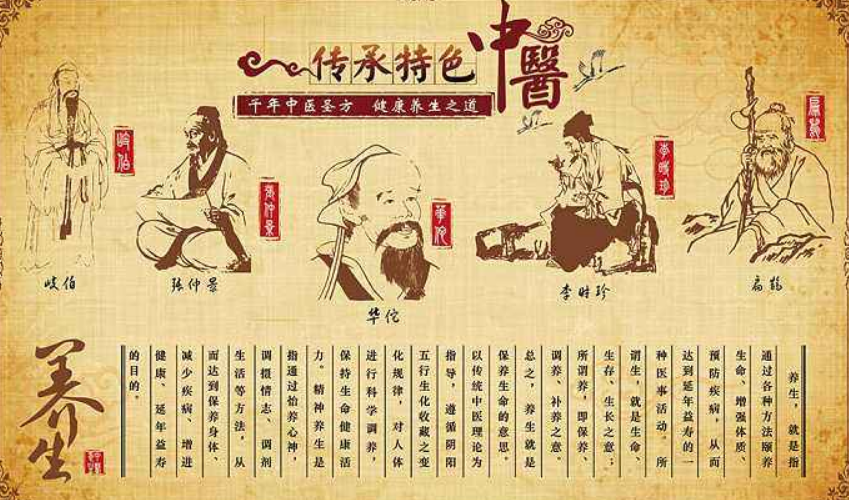 传承特色中醫
千年中医圣方 健康养生之道
岐伯
岐伯
張仲景
张仲景
華佗
华佗
李時珍
李时珍
扁鹊
养生
养生，就是指
通过各种方法颐养
生命、增强体质、
预防疾病，从而
达到延年益寿的一
种医事活动。所
谓生，就是生命、
生存、生长之意；
所谓养，即保养、
调养、补养之意。
总之，养生就是
保养生命的意思。
以传统中医理论为
指导，遵循阴阳
五行生化收藏之变
化规律，对人体
进行科学调养，
保持生命健康活
力。精神养生是
指通过怡养心神，
调摄情志、调剂
生活等方法，从
而达到保养身体、
减少疾病、增进
健康、延年益寿
的目的。